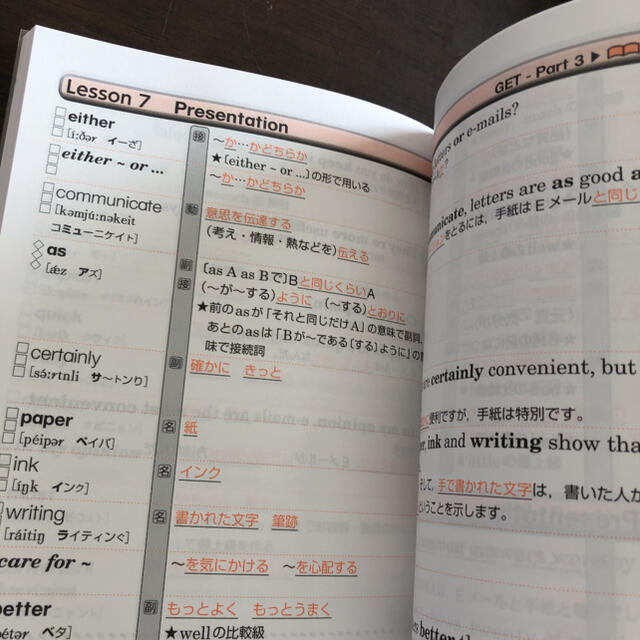 Lesson 7 Presentation
either
[íːðər イーざ]
接
〜か…かどちらか
★〔either ~ or ...〕の形で用いる
either ~ or ...
〜か…かどちらか
communicate
[kəmjúːnəkeit
コミューニケイト]
動
意思を伝達する
(考え・情報・熱などを)伝える
as
[ǽz アズ]
副
〔as A as Bで〕Bと同じくらいA
接
(〜が〜する)ように (〜する)とおりに
★前のasが「それと同じだけA」の意味で副詞、
あとのasは「Bが〜である[する]ように」の意
味で接続詞
certainly
[sə́ːrtnli サ〜トンり]
副
確かに きっと
paper
[péipər ペイパ]
名
紙
ink
[íŋk インク]
名
インク
writing
[ráitiŋ ライティンぐ]
名
書かれた文字 筆跡
care for ~
〜を気にかける 〜を心配する
better
ベタ]
副
もっとよく もっとうまく
★wellの比較級
GET - Part 3
letters or e-mails?
letters are as good a
をとるには、手紙はEメールと同じ
certainly convenient, but
便利ですが、手紙は特別です。
ink and writing show tha
そして、手で書かれた文字は、書いた人が
ということを示します。
better